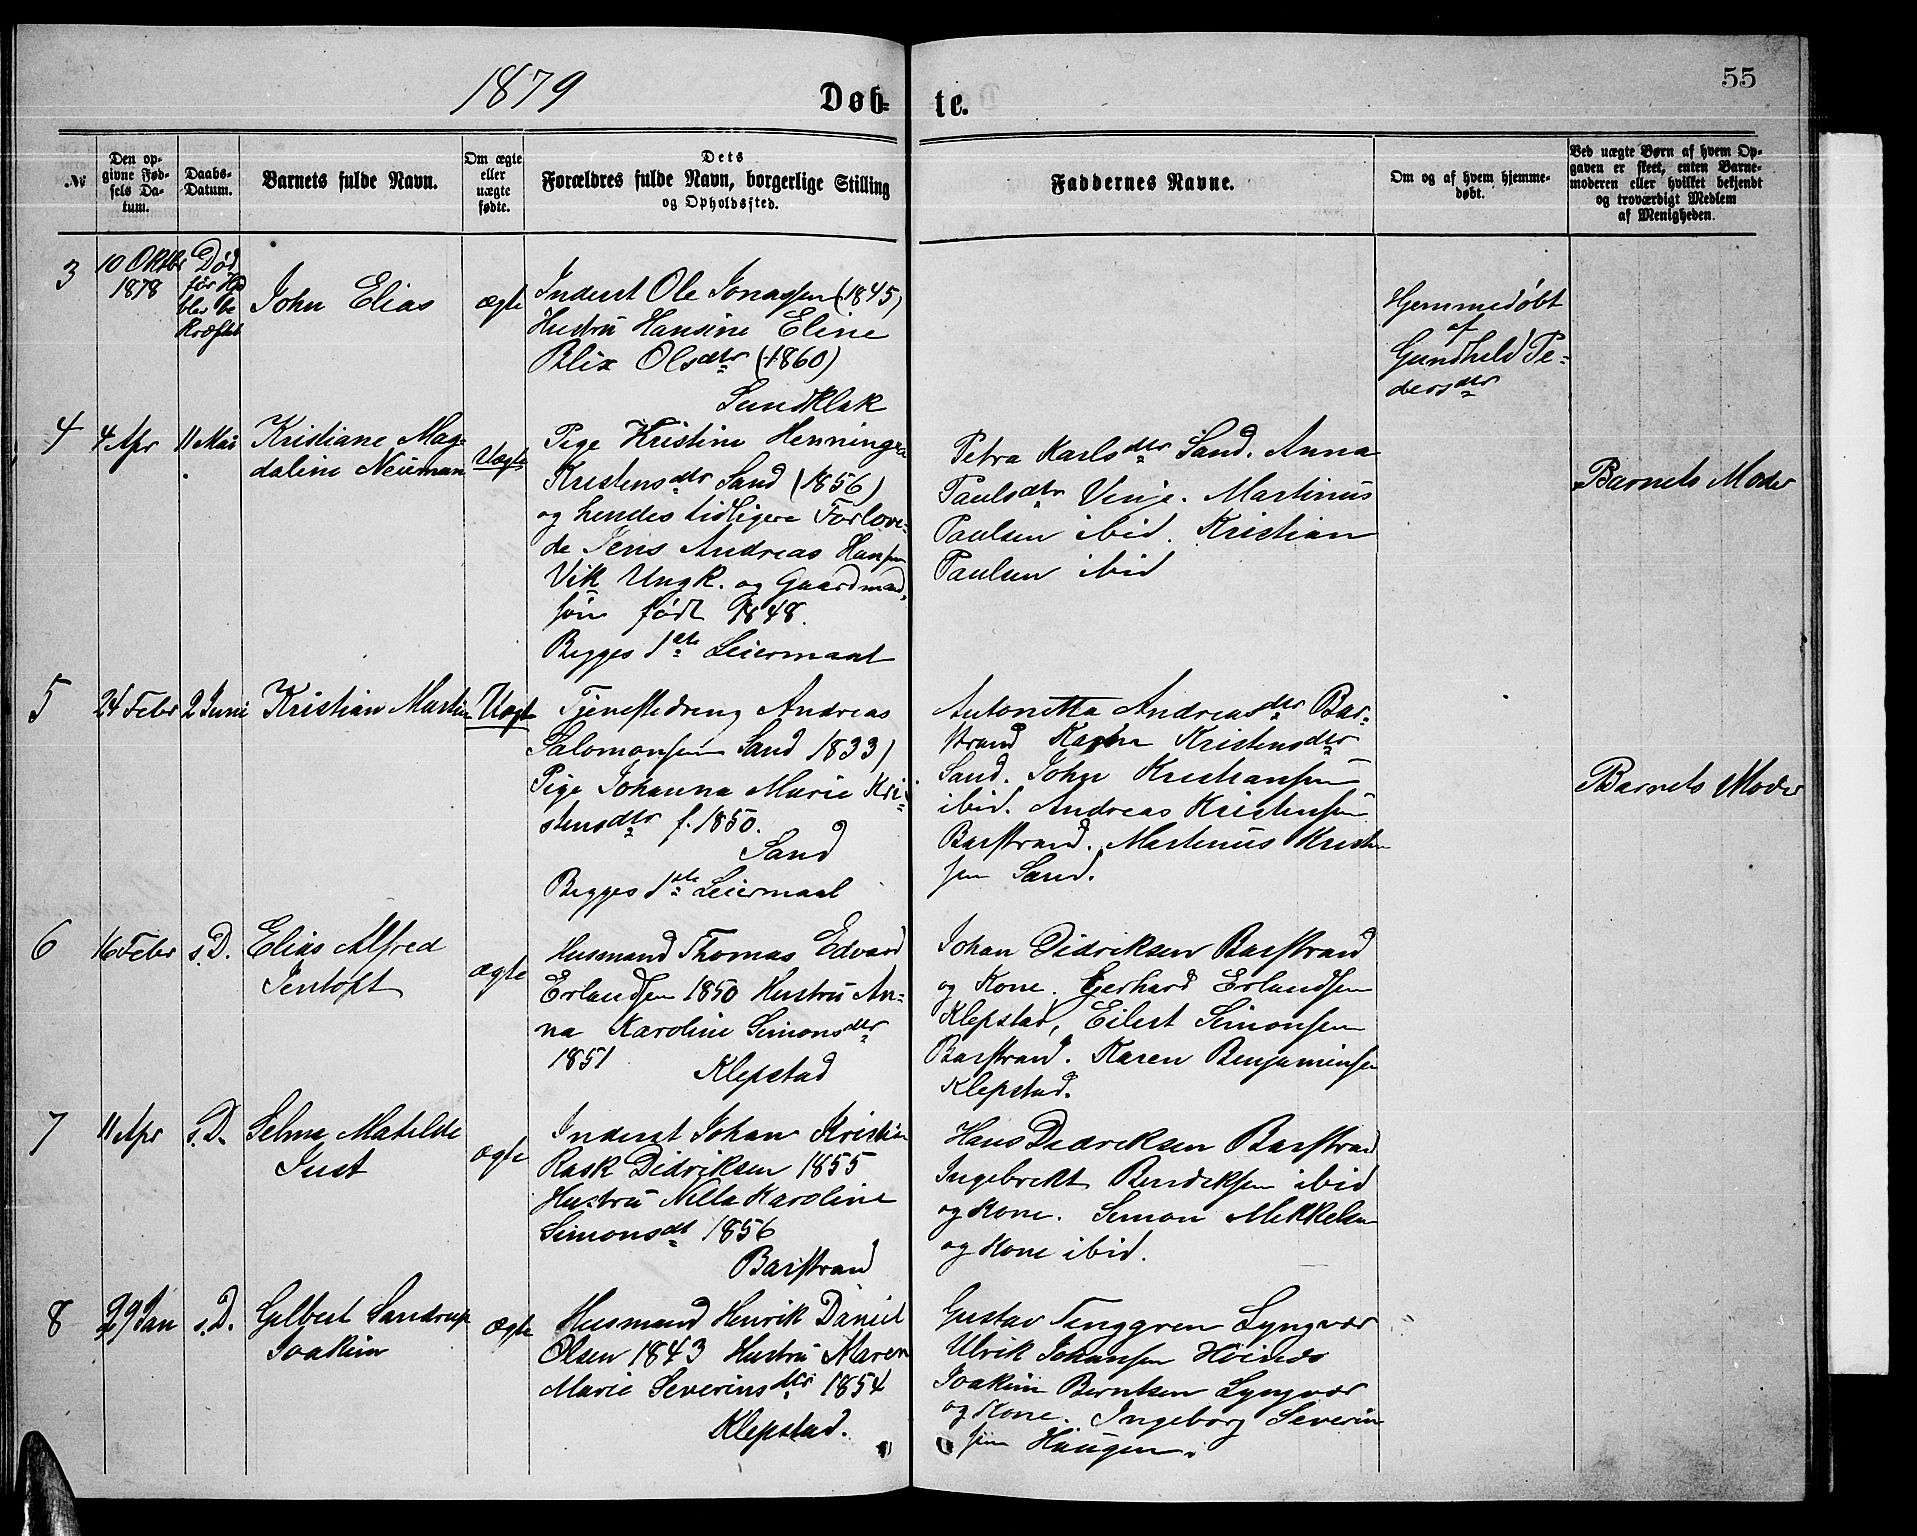 1879
Døb-
te.
55
№
Den op-
givne Fød-
sels Da-
tum.
Daabs-
Datum.
Barnets fulde Navn.
Om ægte
eller
uægte
fødte.
Dets
Forældres fulde Navn, borgerlige Stilling
og Opholdssted.
Faddernes Navne.
Om og af hvem hjemme-
døbt.
Ved uægte Børn af hvem Op-
gaven er skeet, enten Barne-
moderen eller hvilket bekjendt
og troværdigt Medlem
af Menigheden.
3
10 Oktbr
1878
Død
før
blev be
kræftet
John Elias
ægte
Inderst Ole Jonassen (1845)
Hustru Hansine Eline
Blix Olsdtr (1860)
Sundklak
Hjemmedøbt
af
Gundhild Pe-
dersdtr
4
4 Apr
11 Mai
Kristiane Mag-
daline Neuman
Uægte
Pige Kristine Henningea
Kristensdtr Sand (1856)
og hendes tidligere Forlove-
de Jens Andreas Hansen
Vik Ungk. og Gaardmands
søn født 1848.
Begges 1ste Leiermaal
Petra Karlsdtr Sand. Anna
Paulsdtr Vinje. Martinus
Paulsen ibid. Kristian
Paulsen ibid
Barnets Moder
5
24 Febr
2 Juni
Kristian Martin
Uægte
Tjenestedreng Andreas
Salomonsen Sand 1833)
Pige Johanna Marie Kri-
stensdtr f. 1850.
Sand
Begges 1ste Leiermaal
Antonetta Andreasdtr Bar-
strand Kristensdtr
Sand. John Kristiansen
ibid. Andreas Kristensen
Barstrand. Martinus Kristen
sen Sand.
Barnets Moder
6
16 Febr
s.D.
Elias Alfred
Jentoft
ægte
Husmand Thomas Edvard
Erlandsen 1850 Hustru An-
na Karoline Simonsdtr
1851
Klepstad
Johan Didriksen Barstrand
og Kone. Gerhard Erlandsen
Klepstad, Eilert Simonsen
Barstrand. Karen Benjaminsen
Klepstad.
7
11 Apr
s.D.
Selma Matilde
Just
ægte
Inderst Johan Kristian
Rask Didriksen 1855
Hustru Nilla Karoline
Simonsdt 1856
Barstrand
Hans Didriksen Barstrand
Ingebrekt Bendiksen ibid
og Kone. Simon Mikkelsen
og Kone ibid.
8
29 Jan
s.D.
Gilbert Sandrup
Joakim
Ægte
Husmand Henrik Daniel
Olsen 1843 Hustru Maren
Marie Severinsdtr 1854
Klepstad.
Gustav Tenggren Lyngvær
Ulrik Johansen
Joakim Berntsen Lyngvær
og Kone. Ingeborg Severin
sen Haugen.